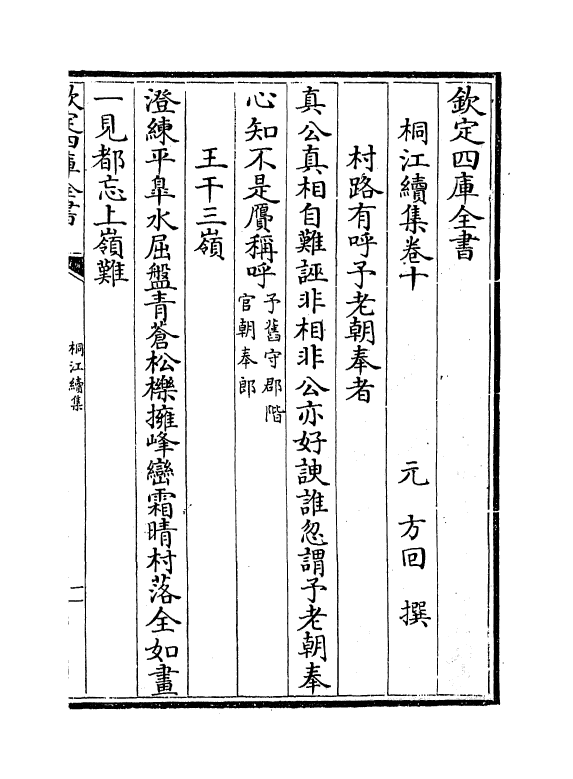 欽定四庫全書
桐江續集卷十
元 方回 撰
村路有呼予老朝奉者
真公真相自難誣非相非公亦好諛誰忽謂予老朝奉
心知不是贗稱呼予舊守郡階
官朝奉郎
王干三嶺
澄練平臯水屈盤青蒼松櫟擁峰巒霜晴村落全如畫
一見都忘上嶺難
欽定四庫全書
桐江續集
一